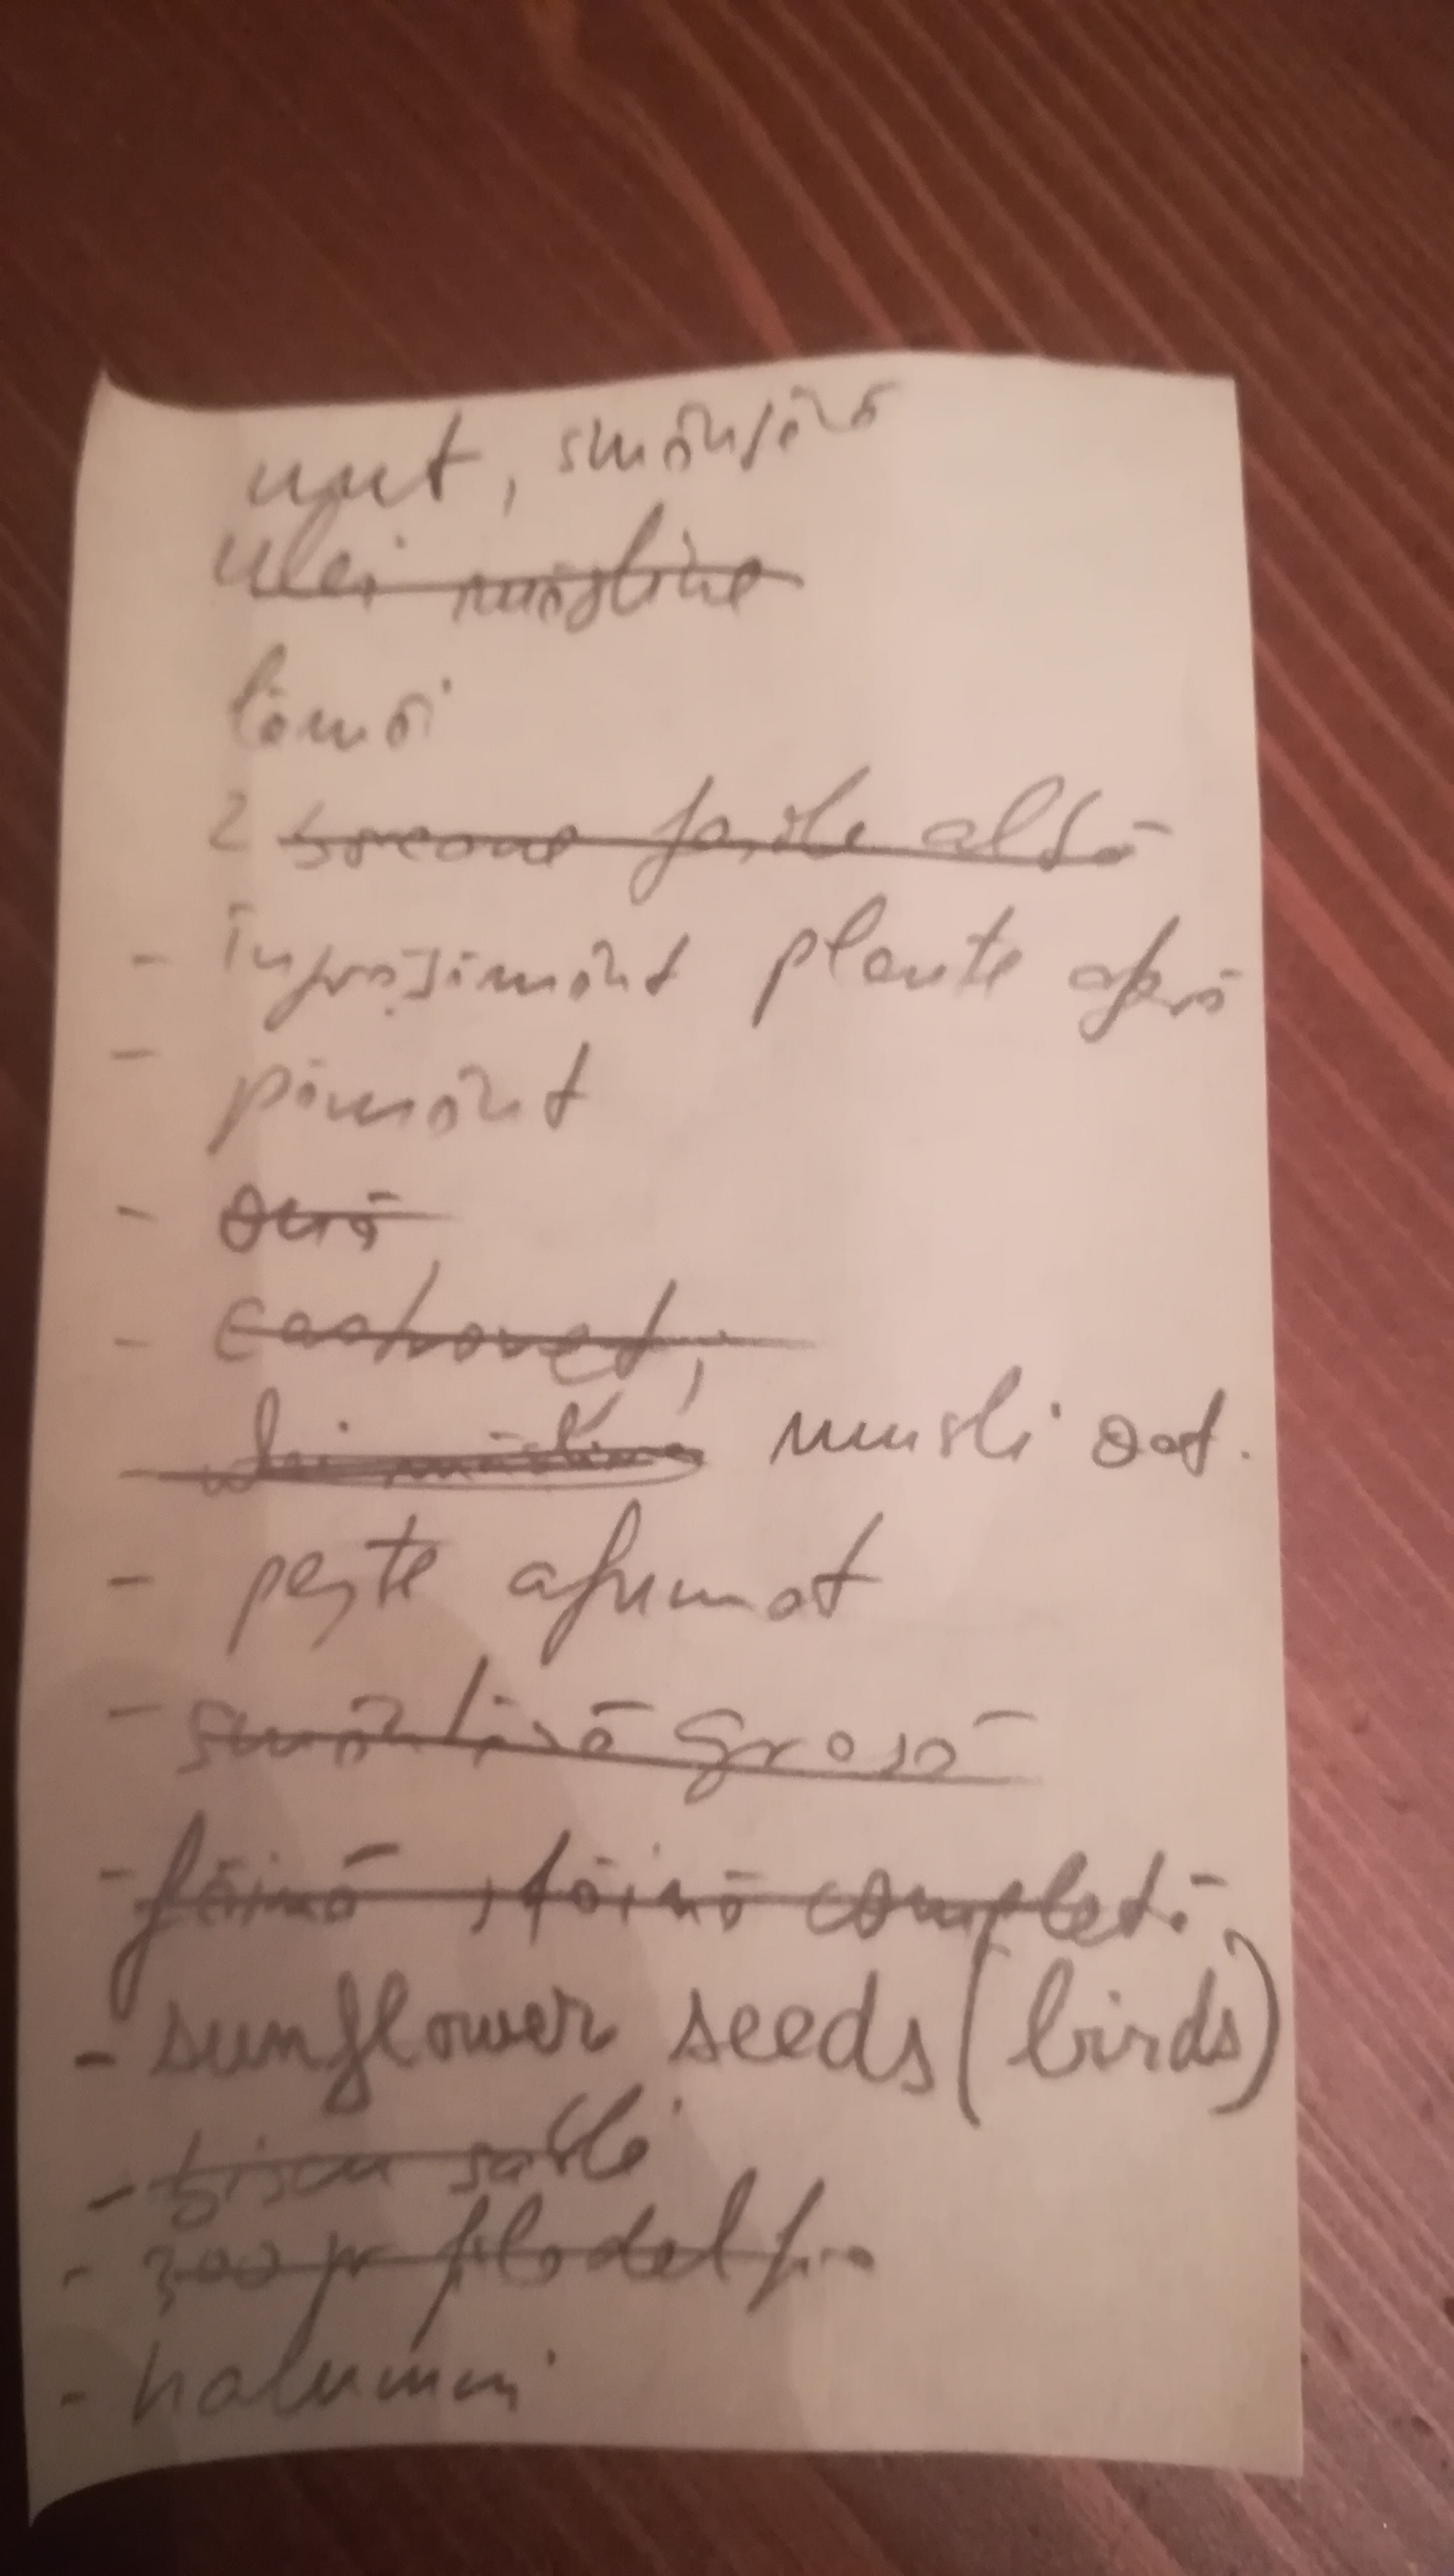 unt, smântână
ulei măsline
lămâi
2 borcane fasole albă
- îngrășământ plante apă
- pământ
- ouă
-
- ulei măsline musli oat.
- pește afumat
- smântână grasă
- făină, făină completă
- sunflower seeds (birds)
-
- 300 gr filadelfia
- halummi